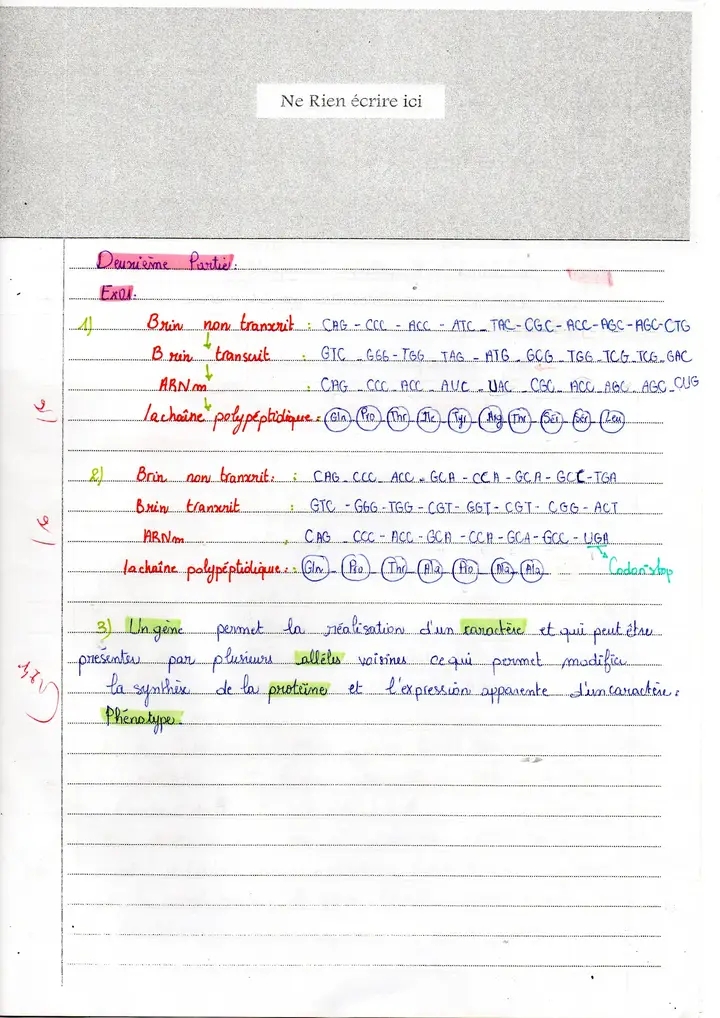 Ne Rien écrire ici
Deuxième Partie:
Ex01:
1) Brin non transcrit : CAG - CCC - ACC - ATC - TAC - CGC - ACC - AGC - AGC - CTG
Brin transcrit : GTC - GGG - TGG - TAG - ATG - GCG - TGG - TCG - TCG - GAC
ARNm : CAG CCC ACC AUC UAC CGC ACC AGC AGC CUG
la chaîne polypéptidique : Gln - Pro - Thr - Ile - Tyr - Arg - Thr - Sér - Sér - Leu
2) Brin non transcrit : CAG - CCC - ACC - GCA - CCA - GCA - GCC - TGA
Brin transcrit : GTC - GGG - TGG - CGT - GGT - CGT - CGG - ACT
ARNm : CAG CCC - ACC - GCA - CCA - GCA - GCC - UGA
la chaîne polypéptidique : Gln - Pro - Thr - Ala - Pro - Ala - Ala Codon-stop
3) Un gène permet la réalisation d'un caractère et qui peut être
présenter par plusieurs allélès voisines ce qui permet modifier
la synthèse de la protéine et l'expression apparente d'un caractère :
Phénotype.